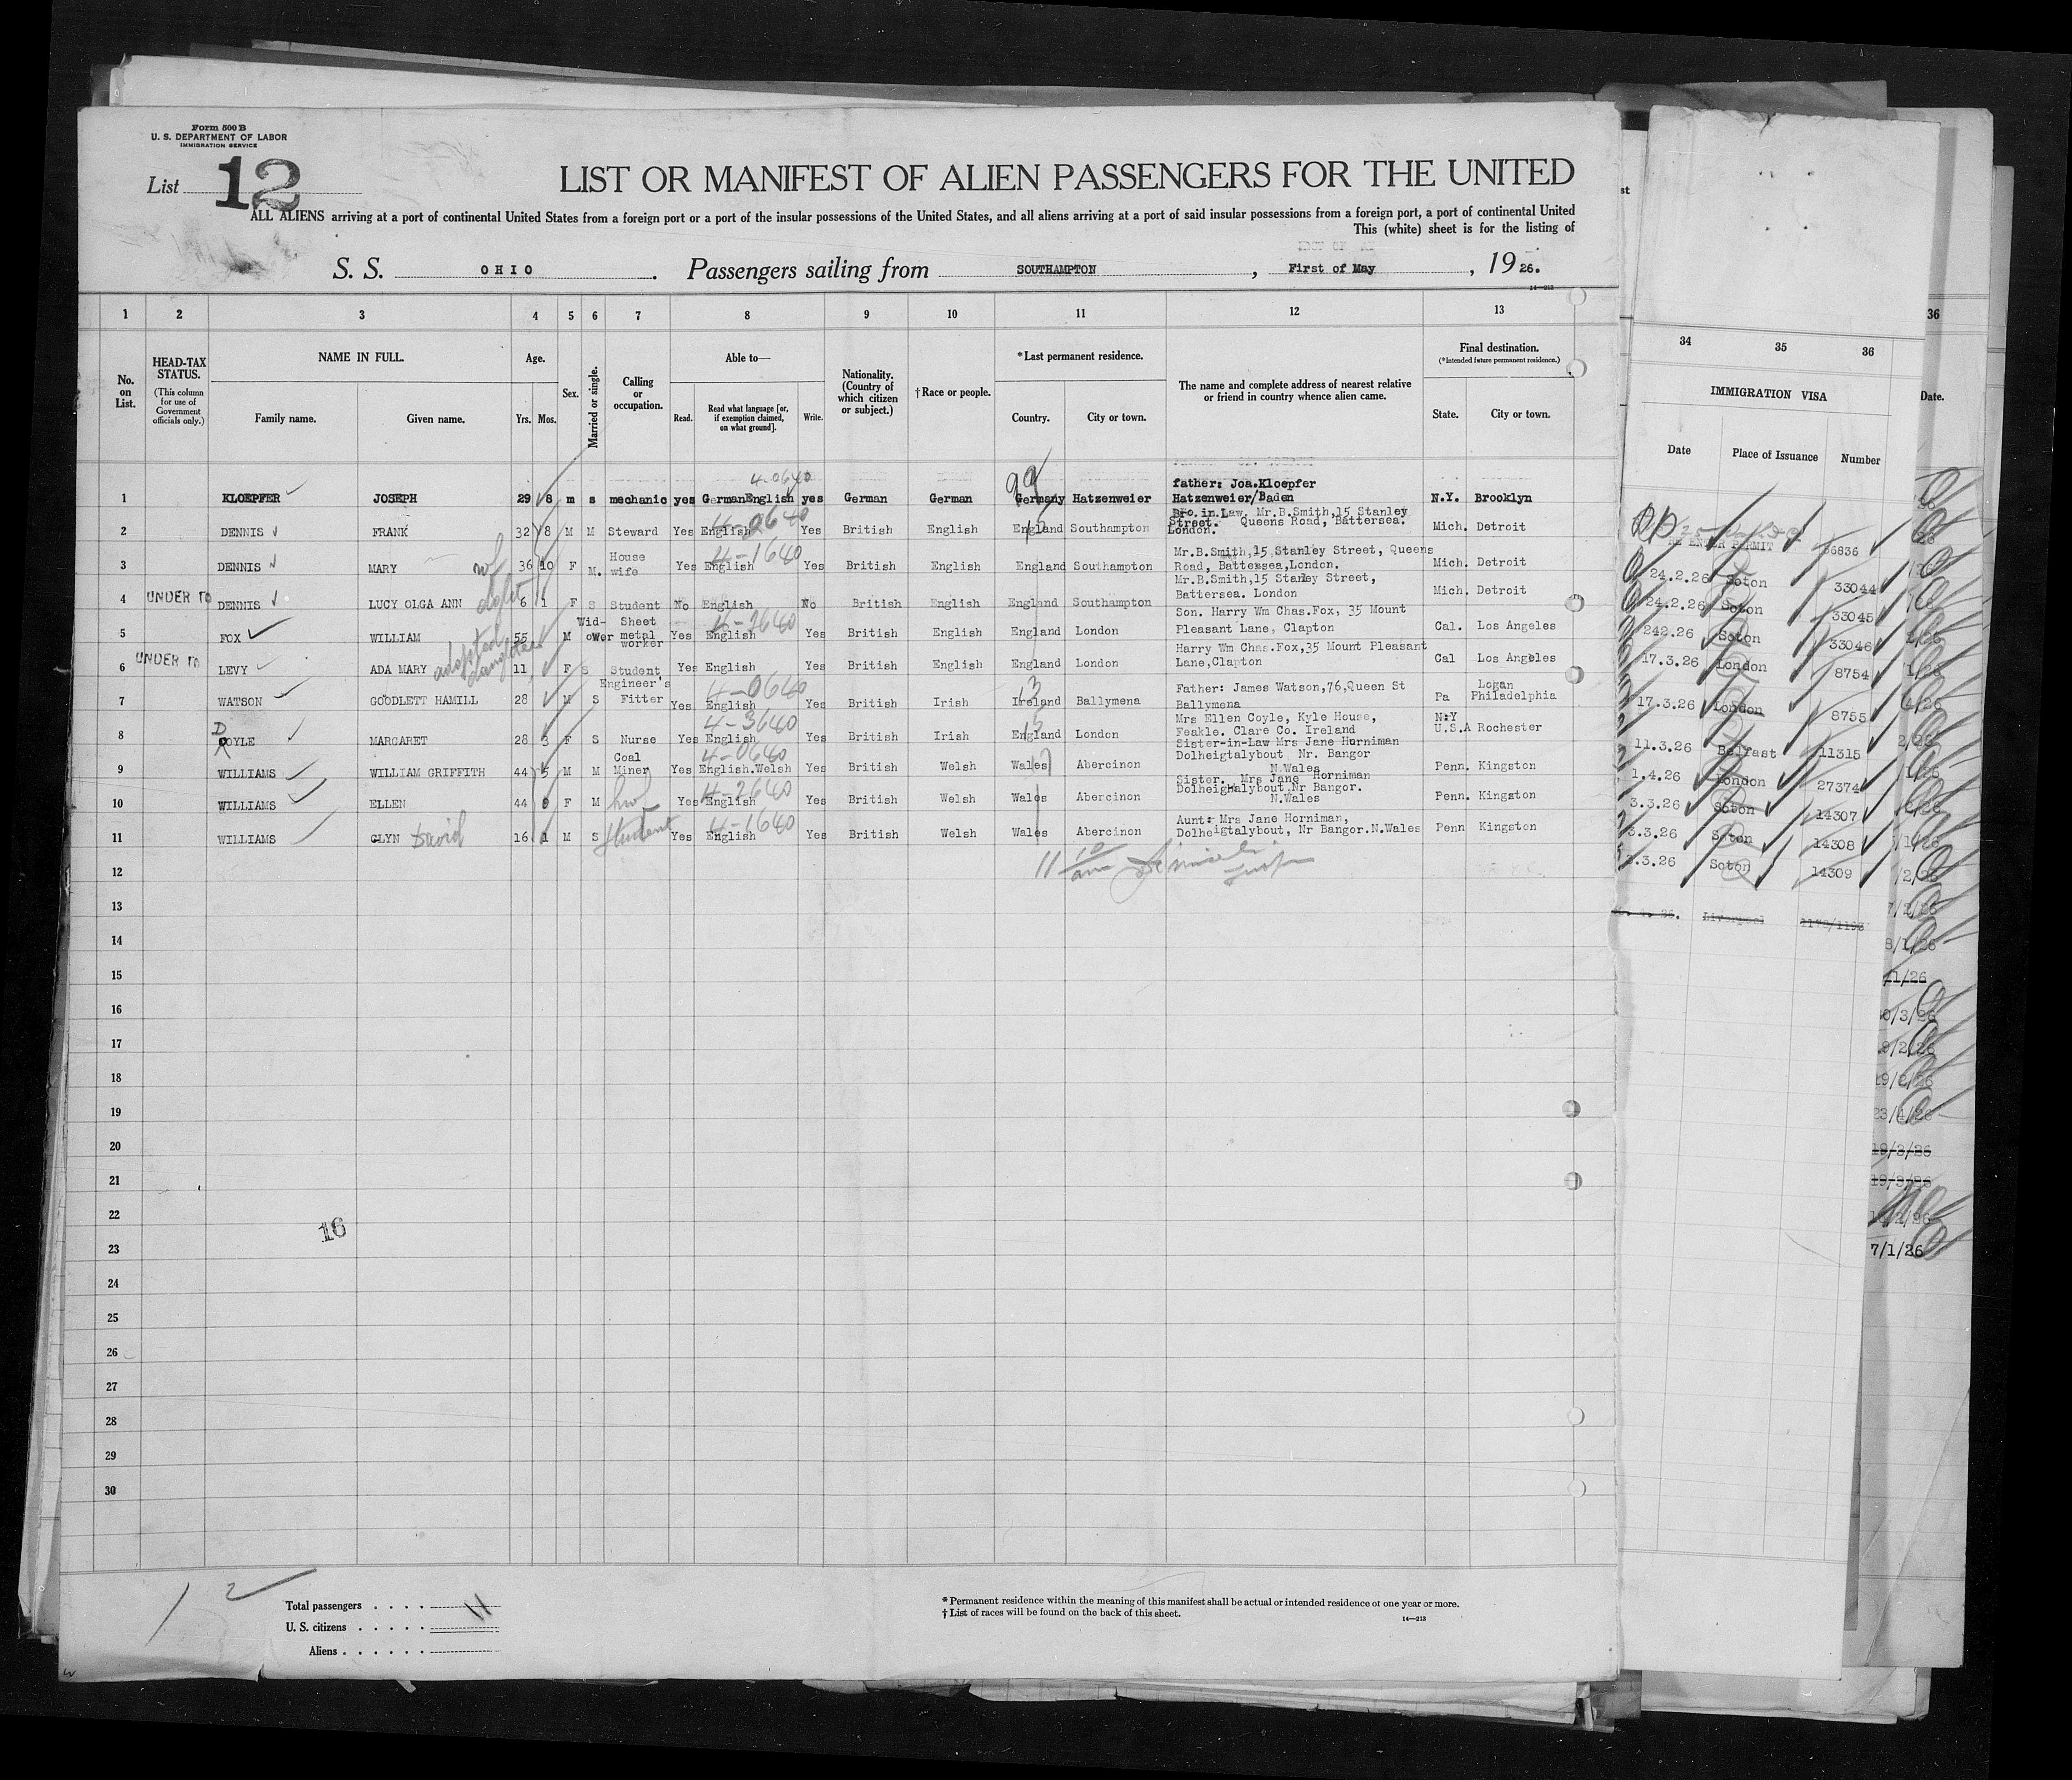 Form 500 B
U. S. DEPARTMENT OF LABOR
IMMIGRATION SERVICE
List 12
LIST OR MANIFEST OF ALIEN PASSENGERS FOR THE UNITED
ALL ALIENS arriving at a port of continental United States from a foreign port or a port of the insular possessions of the United States, and all aliens arriving at a port of said insular possessions from a foreign port, a port of continental United
This (white) sheet is for the listing of
S. S. OHIO. Passengers sailing from SOUTHAMPTON, First of May, 1926.
14—213
1 2 3 4 5 6 7 8 9 10 11 12 13
No. on List.
HEAD-TAX STATUS.
(This column for use of Government officials only.)
NAME IN FULL.
Family name. Given name.
Age.
Yrs. Mos.
Sex.
Married or single.
Calling or occupation.
Able to—
Read. Read what language [or, if exemption claimed, on what ground]. Write.
Nationality. (Country of which citizen or subject.)
†Race or people.
*Last permanent residence.
Country. City or town.
The name and complete address of nearest relative or friend in country whence alien came.
Final destination.
(*Intended future permanent residence.)
State. City or town.
34 35 36
IMMIGRATION VISA
Date Place of Issuance Number
36
Date.
4-0640 99
1 KLOEPFER JOSEPH 29 8 m s mechanic yes GermanEnglish yes German German Germany Hatzenweier father: Joa.Kloepfer Hatzenweier/Baden N.Y. Brooklyn
4-0640
2 DENNIS FRANK 32 8 M M Steward Yes English Yes British English England Southampton Bro.in.Law, Mr.B.Smith,15 Stanley Street. Queens Road, Battersea. London. Mich. Detroit
4-1640
3 DENNIS MARY wf 36 10 F M. House wife Yes English Yes British English England Southampton Mr.B.Smith,15 Stanley Street, Queens Road, Battersea,London. Mich. Detroit
4 UNDER 16 DENNIS LUCY OLGA ANN 6 1 F S Student No English No British English England Southampton Mr.B.Smith,15 Stanley Street, Battersea. London Mich. Detroit
4-2640
5 FOX WILLIAM 55 M Wid-ower Sheet metal worker Yes English Yes British English England London Son. Harry Wm Chas.Fox, 35 Mount Pleasant Lane, Clapton Cal. Los Angeles
6 UNDER 16 LEVY ADA MARY adopted daughter 11 F S Student Yes English Yes British English England London Harry Wm Chas.Fox,35 Mount Pleasant Lane,Clapton Cal Los Angeles
4-0640 13
7 WATSON GOODLETT HAMILL 28 M S Engineer's Fitter Yes English Yes British Irish Ireland Ballymena Father: James Watson,76,Queen St Ballymena Pa Logan Philadelphia
4-3640
8 DOYLE MARGARET 28 3 F S Nurse Yes English Yes British Irish England London Mrs Ellen Coyle, Kyle House, Feakle. Clare Co. Ireland N:Y U.S.A Rochester
4-0640
9 WILLIAMS WILLIAM GRIFFITH 44 5 M M Coal Miner Yes English.Welsh Yes British Welsh Wales Abercinon Sister-in-Law Mrs Jane Horniman Dolheigtalybout Nr. Bangor N.Wales Penn. Kingston
4-2640
10 WILLIAMS ELLEN 44 9 F M hwf Yes English Yes British Welsh Wales Abercinon Sister. Mrs Jane Horniman Dolheightalybout,Nr Bangor. N.Wales Penn. Kingston
4-1640
11 WILLIAMS GLYN David 16 1 M S Student Yes English Yes British Welsh Wales Abercinon Aunt: Mrs Jane Horniman, Dolheigtalybout, Nr Bangor.N.Wales Penn Kingston
12
13
14
15
16
17
18
19
20
21
22
23
24
25
26
27
28
29
30
16
RE ENTER PERMIT 66836
24.2.26 Soton 33044
24.2.26 Soton 33045
242.26 Soton 33046
17.3.26 London 8754
17.3.26 London 8755
11.3.26 Belfast 11315
1.4.26 London 27374
3.3.26 Soton 14307
3.3.26 Soton 14308
3.3.26 Soton 14309
Liverpool
7/1/26
1 2
Total passengers . . . . 11
U. S. citizens . . . . .
Aliens . . . . . .
* Permanent residence within the meaning of this manifest shall be actual or intended residence of one year or more.
† List of races will be found on the back of this sheet.
14—213